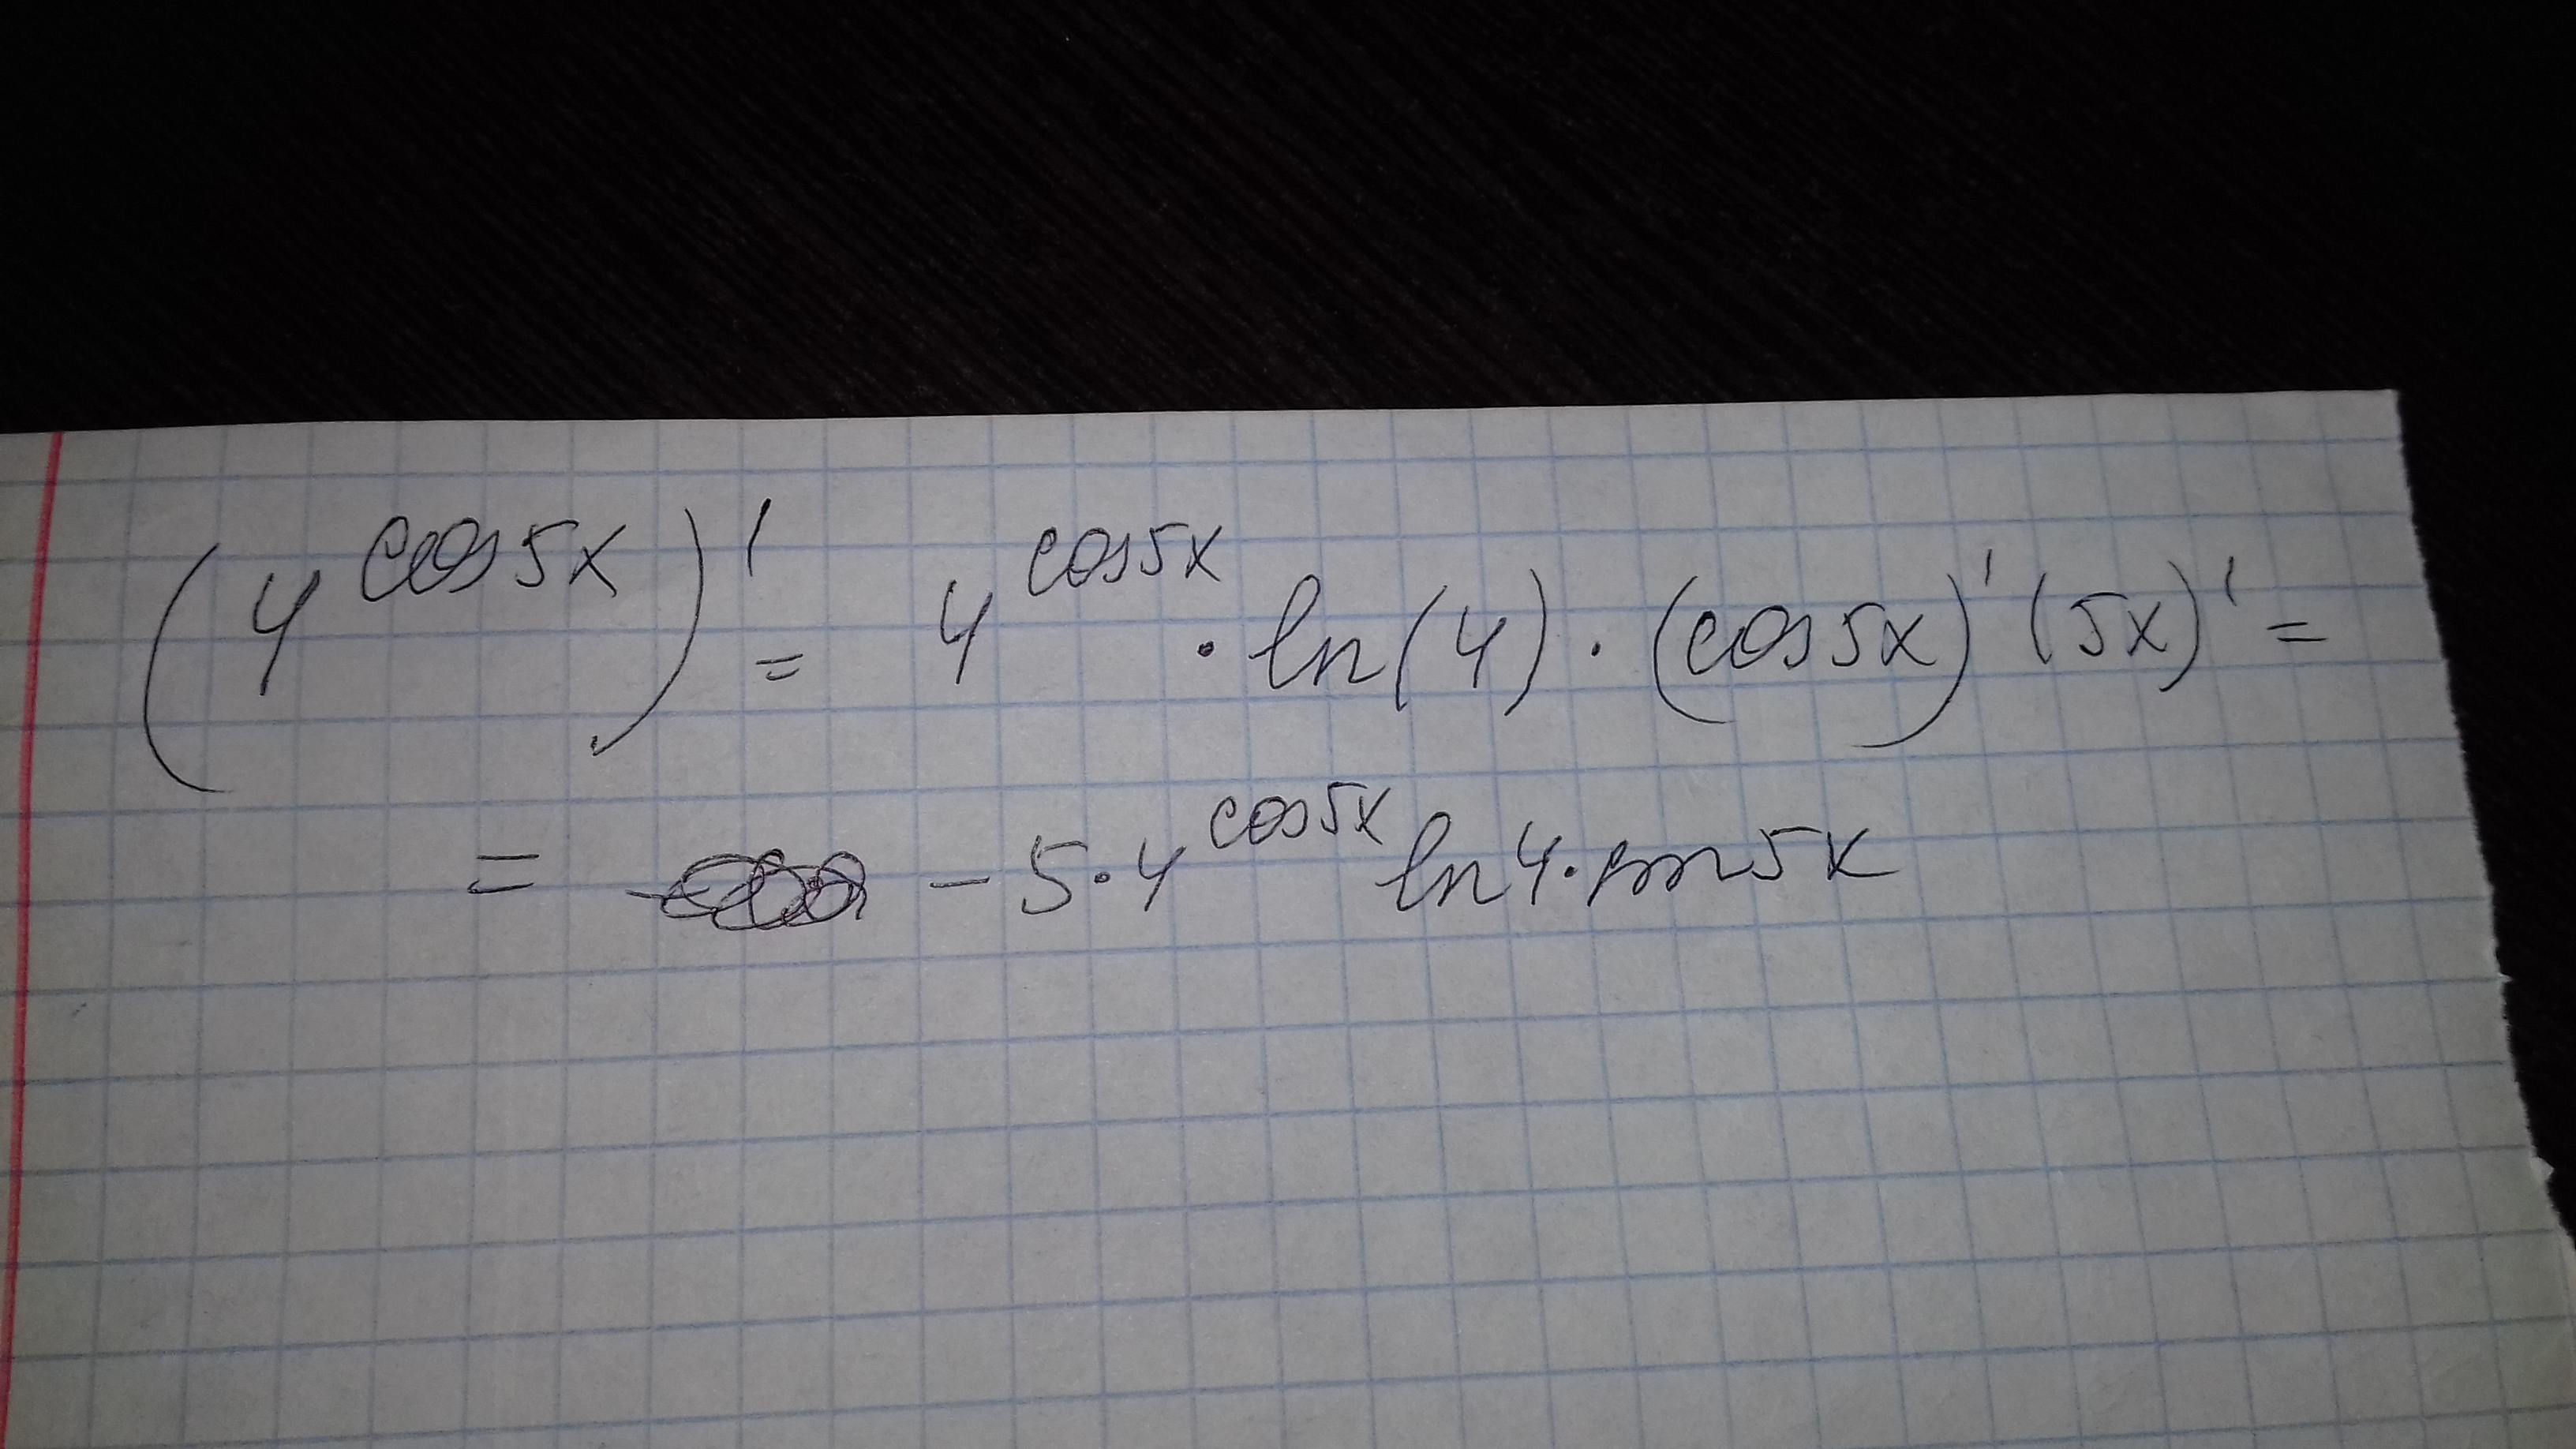 (4^cos5x)' = 4^cos5x · ln(4) · (cos5x)' (5x)' =
= - 5·4^cos5x ln4·sin5x